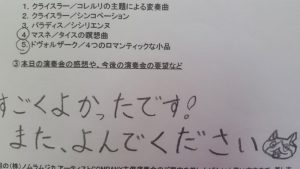 1. クライスラー／コレルリの主題による変奏曲
2. クライスラー／シンコペーション
3. パラディス／シシリエンヌ
④ マスネ／タイスの瞑想曲
⑤ ドヴォルザーク／４つのロマンティックな小品
③ 本日の演奏会の感想や、今後の演奏会の要望など
すごくよかったです！
また、よんでください